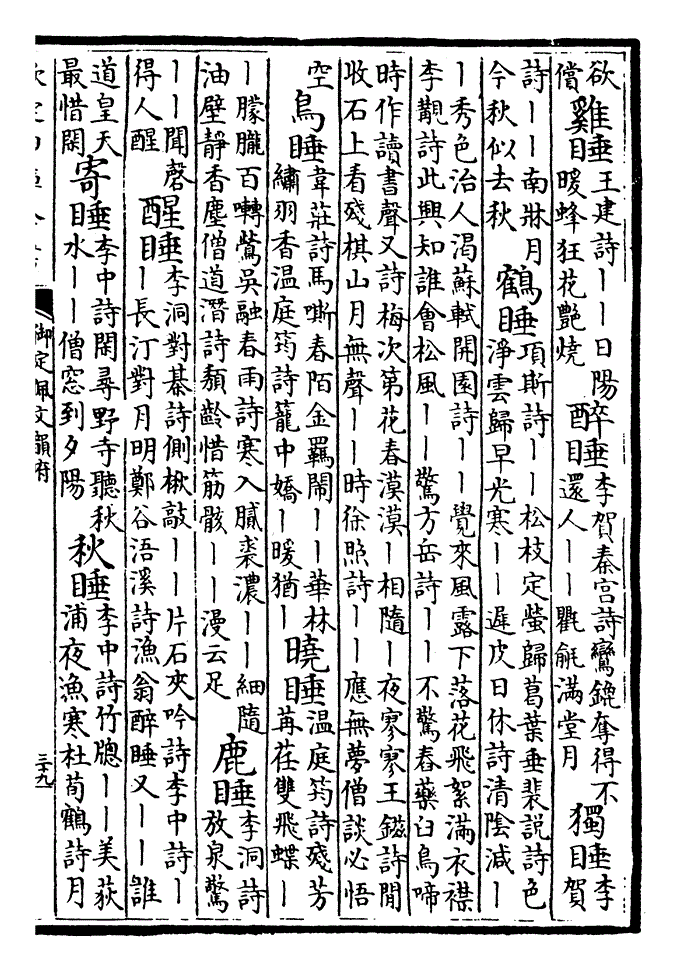 欲償雞睡王建詩——日陽暖蜂狂花艷燒醉睡李賀秦宮詩鸞鎞奪得不還人——氍毹滿堂月獨睡李賀
詩——南牀月今秋似去秋鶴睡項斯詩——松枝定螢歸葛葉垂裴説詩色淨雲歸早光寒——遲皮日休詩清陰減—
—秀色治人渴蘇軾開園詩——覺來風露下落花飛絮滿衣襟李覯詩此興知誰會松風——驚方岳詩——不驚舂藥臼鳥啼
時作讀書聲又詩梅次第花春漠漠—相隨—夜寥寥王鎡詩閒收石上看殘棋山月無聲——時徐照詩——應無夢僧談必悟
空鳥睡韋莊詩馬嘶春陌金羈鬧——華林繡羽香温庭筠詩籠中嬌—暖猶—曉睡温庭筠詩殘芳苒荏雙飛蝶—
—朦朧百囀鶯吳融春雨詩寒入膩裘濃——細隨油壁靜香塵僧道潛詩頽齡惜筋骸——漫云足鹿睡李洞詩放泉驚
——聞磬得人醒醒睡李洞對棊詩側楸敲——片石夾吟詩李中詩——長汀對月明鄭谷浯溪詩漁翁醉睡又——誰
道皇天最惜閑寄睡李中詩閑尋野寺聽秋水——僧窓到夕陽秋睡李中詩竹牎——美荻浦夜漁寒杜荀鶴詩月
御定佩文韻府
三十九